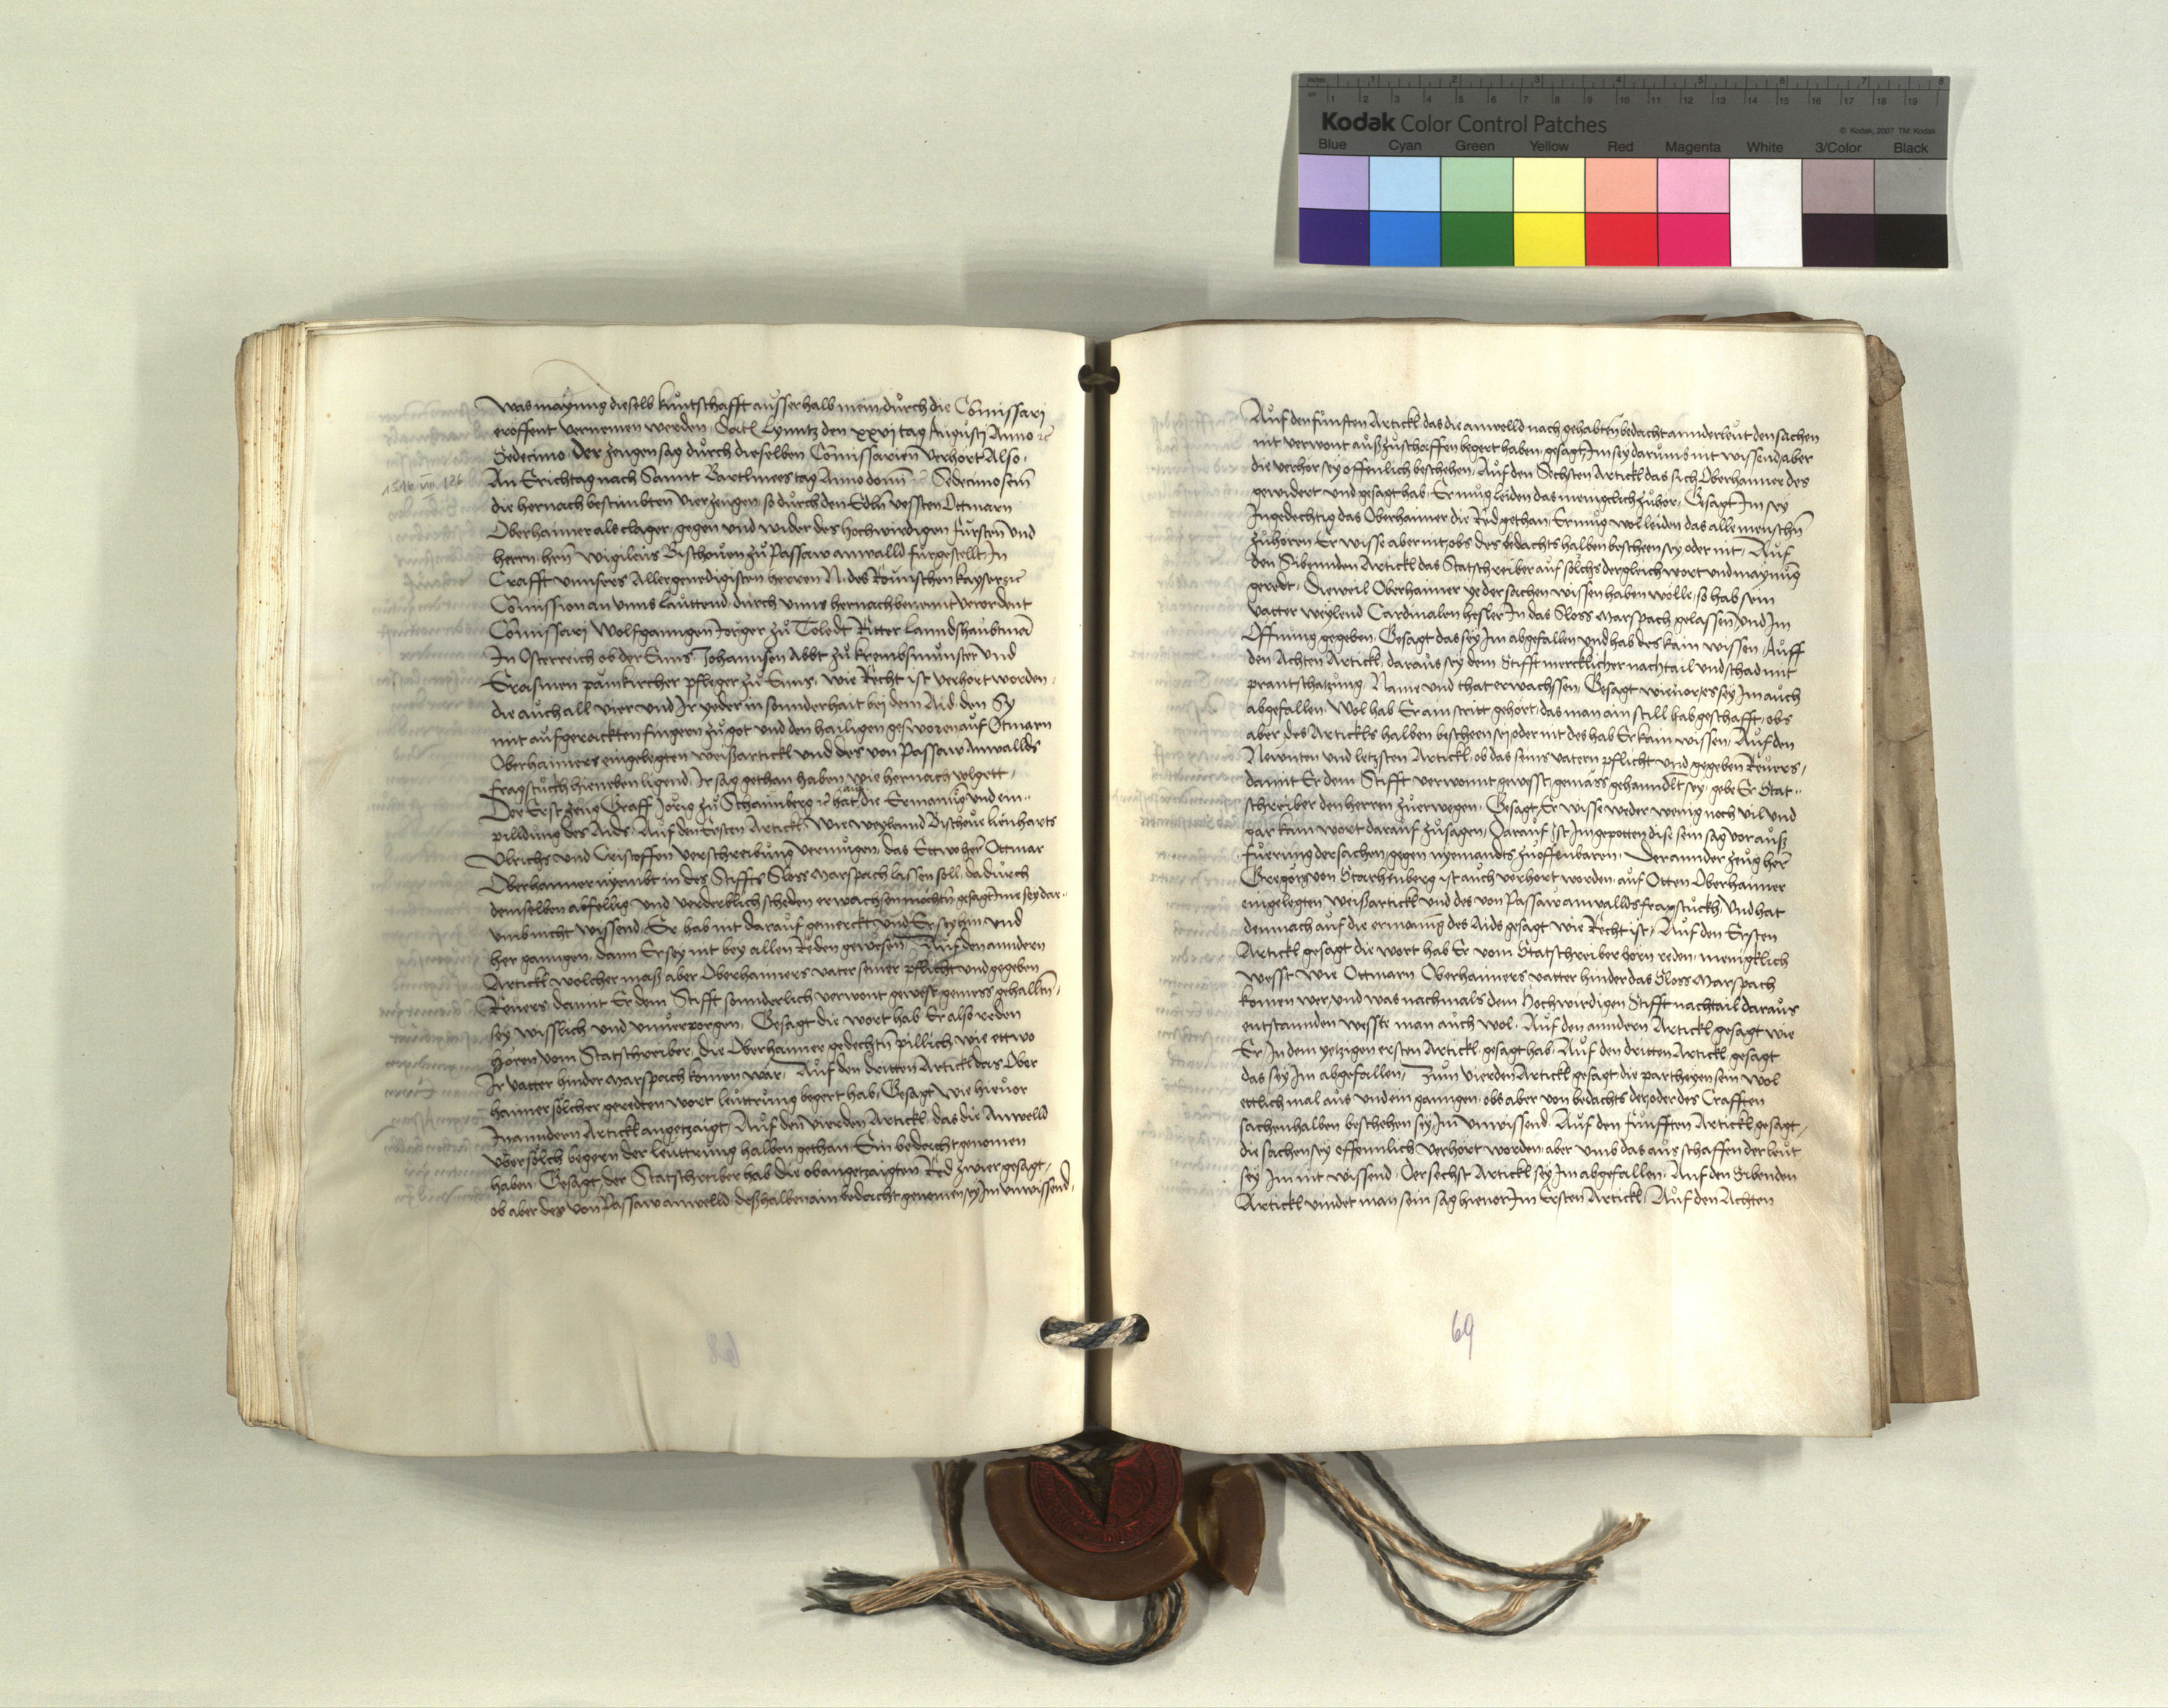 Kodak Color Control Patches
© Kodak, 2007 TM: Kodak
Blue Cyan Green Yellow Red Magenta White 3/Color Black
was maynung dieselb kuntschafft ausserhalb mein durch die Comissari
eröffent vernemen werden Lynntz den xxvi tag Augusti Anno
Sedecimo der zeugen sag durch dieselben Comissarien verhört Also
An Erichtag nach Sannt Bartlmees tag Anno domī Sedecimo sein
die hernach bestimbten vier zeugen so durch den Edln vessten Ottmarn
Oberhaimer als clager gegen und wider des hochwirdigen fursten und
herrn hern Wigileus Bischouen zu Passaw anwalld furgestellt In
Crafft unnsers Allergenedigisten herren N. des Römischen kaysers
Comission an unns lauttend durch unns hernach benennt verordent
Comissari Wolfganngen Jörger zu Toledt Ritter Lanndshaubtmā
In Osterreich ob der Enns Johannsen Abbt zu krembsmunster und
Erasmen pämkircher pfleger zu Enns wie Recht ist verhört worden
die auch all vier und Ir yeder in sonnderhait bei dem Aid den Sy
mit aufgerackten fingern zu got und den hailigen gesworen auf Otmarn
Oberhaimers eingelegten weißartickl und des von Passaw Anwallds
fragstuckh hieneben ligend Ir sag gethan haben wie hernach volgett
Der Erst zeug Graff Jörig zu Schaunberg hat die Ermanung und ein
pilldung des Aids Auf den Ersten Artickl wie weylennd Bischoue lienharts
Ulrichs und Cristoffen verschreibung vermugen das Ettwo her Ottmar
Oberhaimer nyembt in des Stiffts Sloss Marspach lassen soll dadurch
demselben abfellig und verderblich scheden erwachsen möchtn gesagt Ime sey dar
umb nicht wissend Er hab nit darauf gemerckt und Er sey hin und
her ganngen dann Er sey nit bey allen Reden gewesen Auf den anndern
Artickl welcher maß aber Oberhaimers vater seiner pflicht und gegeben
Reuers damit Er dem Stifft sonnderlich verwont gewesst gemess gehalltn
sey wisslich und unuerporgen Gesagt die wort hab Er also reden
hören vom Statschreiber die Oberhaimer gedechtn pillich wie ettwo
Ir vatter hinder Marspach komen wär Auf den dritten Artickl das Ober
haimer sölcher geredten wort leuttrung begert hab Gesagt wie hieuor
In anndern Artickl angetzaigt Auf den vierden Artickl das die Anwelld
uber sölch begern der leuttrung halben gethan Ein bedacht genomen
haben Gesagt der Statschreiber hab die obangetzaigten Red zwier gesagt
ob aber des von Passaw anwelld deßhalben ain bedacht genomen sey Im unwissend
68
Auf den funften Artickl das die anwelld nach gehabten bedacht annder leut den sachen
nit verwont außzuschaffen begert haben gesagt Im sey darumb nit wissend aber
die verhör sey offenlich beschehen Auf den Sechsten Artickl das sich Oberhaimer des
gewidert und gesagt hab Er mug leiden das menigclich zuhör Gesagt Im sey
Ingedechtig das Oberhaimer die Red gethan Er mug wol leiden das alle menschn
zuhören Er wisse aber nit obs des bedachts halben bescheen sey oder nit Auf
den Sibennden Artickl das Statschreiber auf solchs dergleich wort und maynung
geredt Dieweil Oberhaimer ye der sachen wissen haben wölle so hab sein
vatter weylend Cardinalen hesler In das Sloss Marspach gelassen und Im
Öffnung gegeben Gesagt das sey Im abgefallen und hab des kain wissen Auff
den Achten Artickl daraus sey dem Stifft mercklicher nachtail und schad mit
prantschatzung Name und that erwachssen Gesagt wieuor es sey Im auch
abgefallen Wol hab Er ain stritt gehort das man ain still hab geschafft obs
aber des Artickls halben bescheen sey oder nit des hab Er kain wissen Auf den
Newnten und letzsten Artickl ob das seins vatern pflicht und gegeben Reuers
damit Er dem Stifft verwonnt gewesst gemäss gehanndlt sey gebe Er Stat
schreiber den herren zuerwegen Gesagt Er wisse weder wenig noch vil und
gar kain wort darauf zusagen Darauf ist Im gepotten dise sein sag vor auß
fuerung der sachen gegen nyemandts zuoffenbaren Der annder zeug her
Gregorg von Starhenberg ist auch verhört worden auf Otten Oberhaimer
eingelegten weißartickl und des von Passaw anwallds fragstuckh Und hat
demnach auf die ermonung des Aids gesagt wie Recht ist Auf den Ersten
Artickl gesagt die wort hab Er vom Statschreiber hörn reden menigklich
wesst wie Ottmarn Oberhaimers vatter hinder das Sloss Marspach
komen wer und was nachmals dem hochwirdigen Stifft nachtail daraus
entstannden wesste man auch wol Auf den anndern Artickl gesagt wie
Er In dem yetzigen ersten Artickl gesagt hab Auf den dritten Artickl gesagt
das sey Im abgefallen Zum vierden Artickl gesagt die partheyen sein wol
ettlich mal aus und ein ganngen obs aber von bedachts oder des Crafften
sachenhalben beschehen sey Im unwissend Auf den funfften Artickl gesagt
die sachen sey offennlich verhört worden aber umb das ausschaffen der leut
sey Im nit wissend Der sechst Artickl sey Im abgefallen Auf den Sibenden
Artickl vindet man sein sag hieuor Im Ersten Artickl Auf den Achten
69